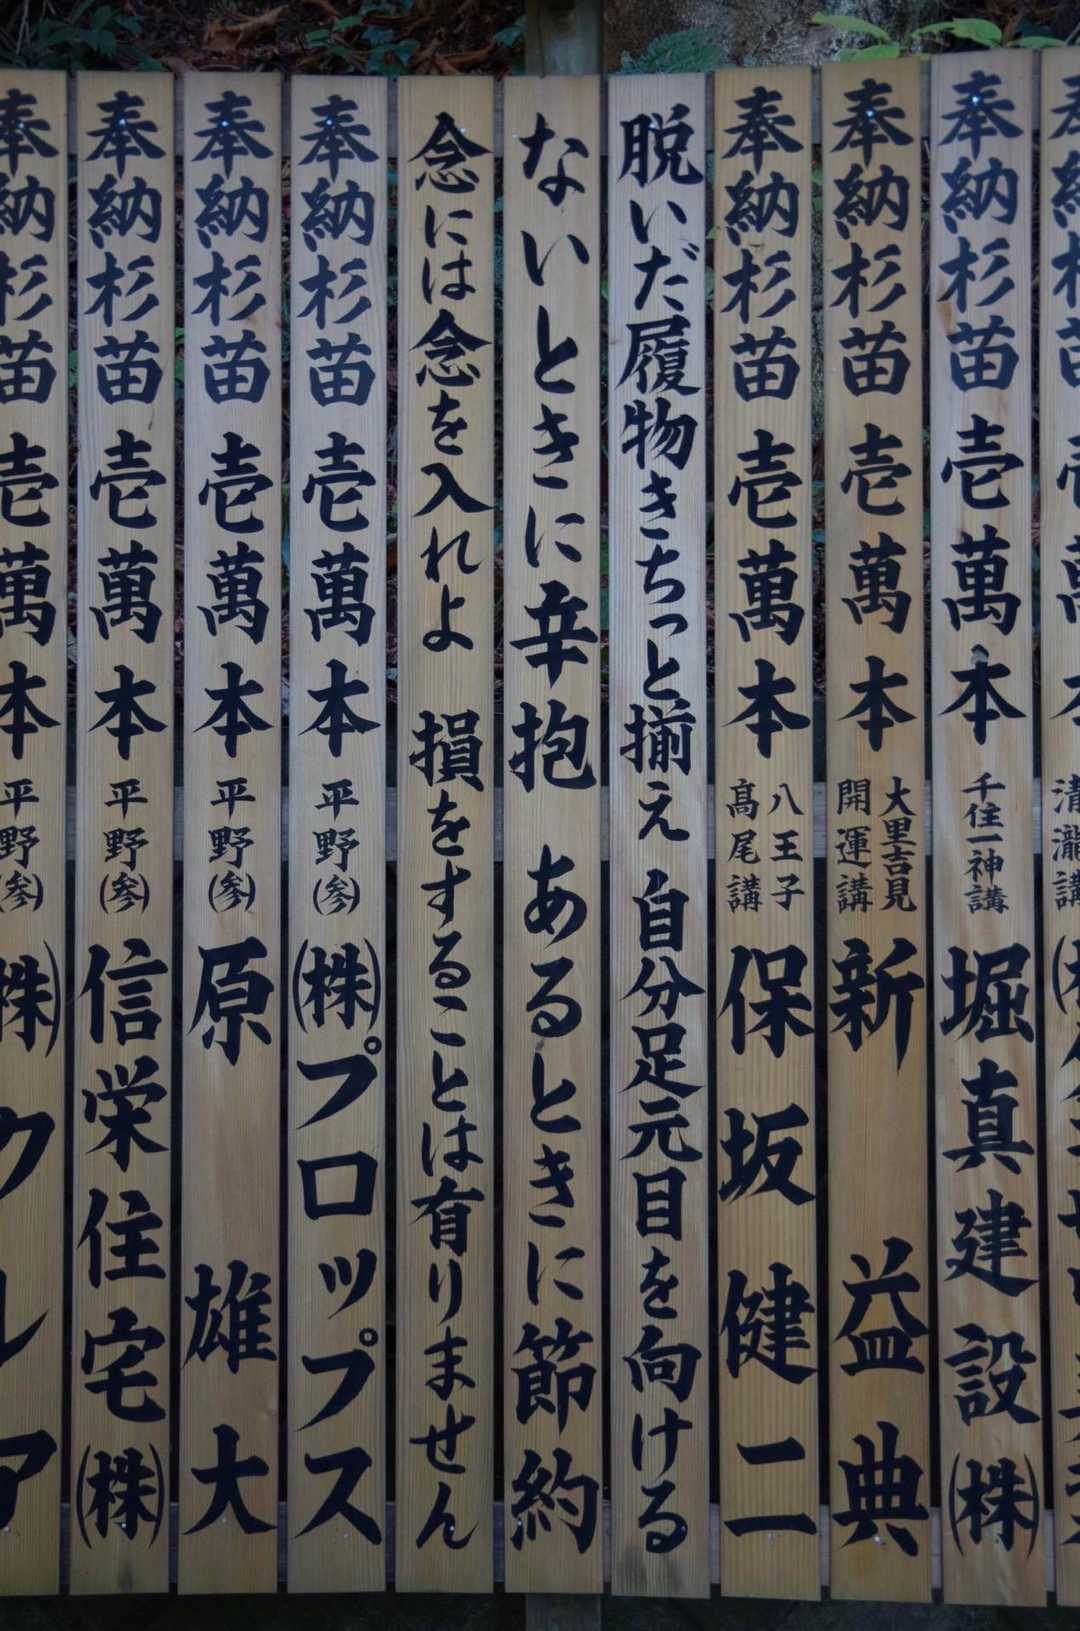 奉納杉苗壱萬本 千住一神講 堀真建設(株)
奉納杉苗壱萬本 大里吉見開運講 新益典
奉納杉苗壱萬本 八王子髙尾講 保坂健二
脱いだ履物きちっと揃え 自分足元目を向ける
ないときに辛抱 あるときに節約
念には念を入れよ 損をすることは有りません
奉納杉苗壱萬本 平野(参) (株)プロップス
奉納杉苗壱萬本 平野(参) 原雄大
奉納杉苗壱萬本 平野(参) 信栄住宅(株)
奉納杉苗壱萬本 平野(参) (株)ウ